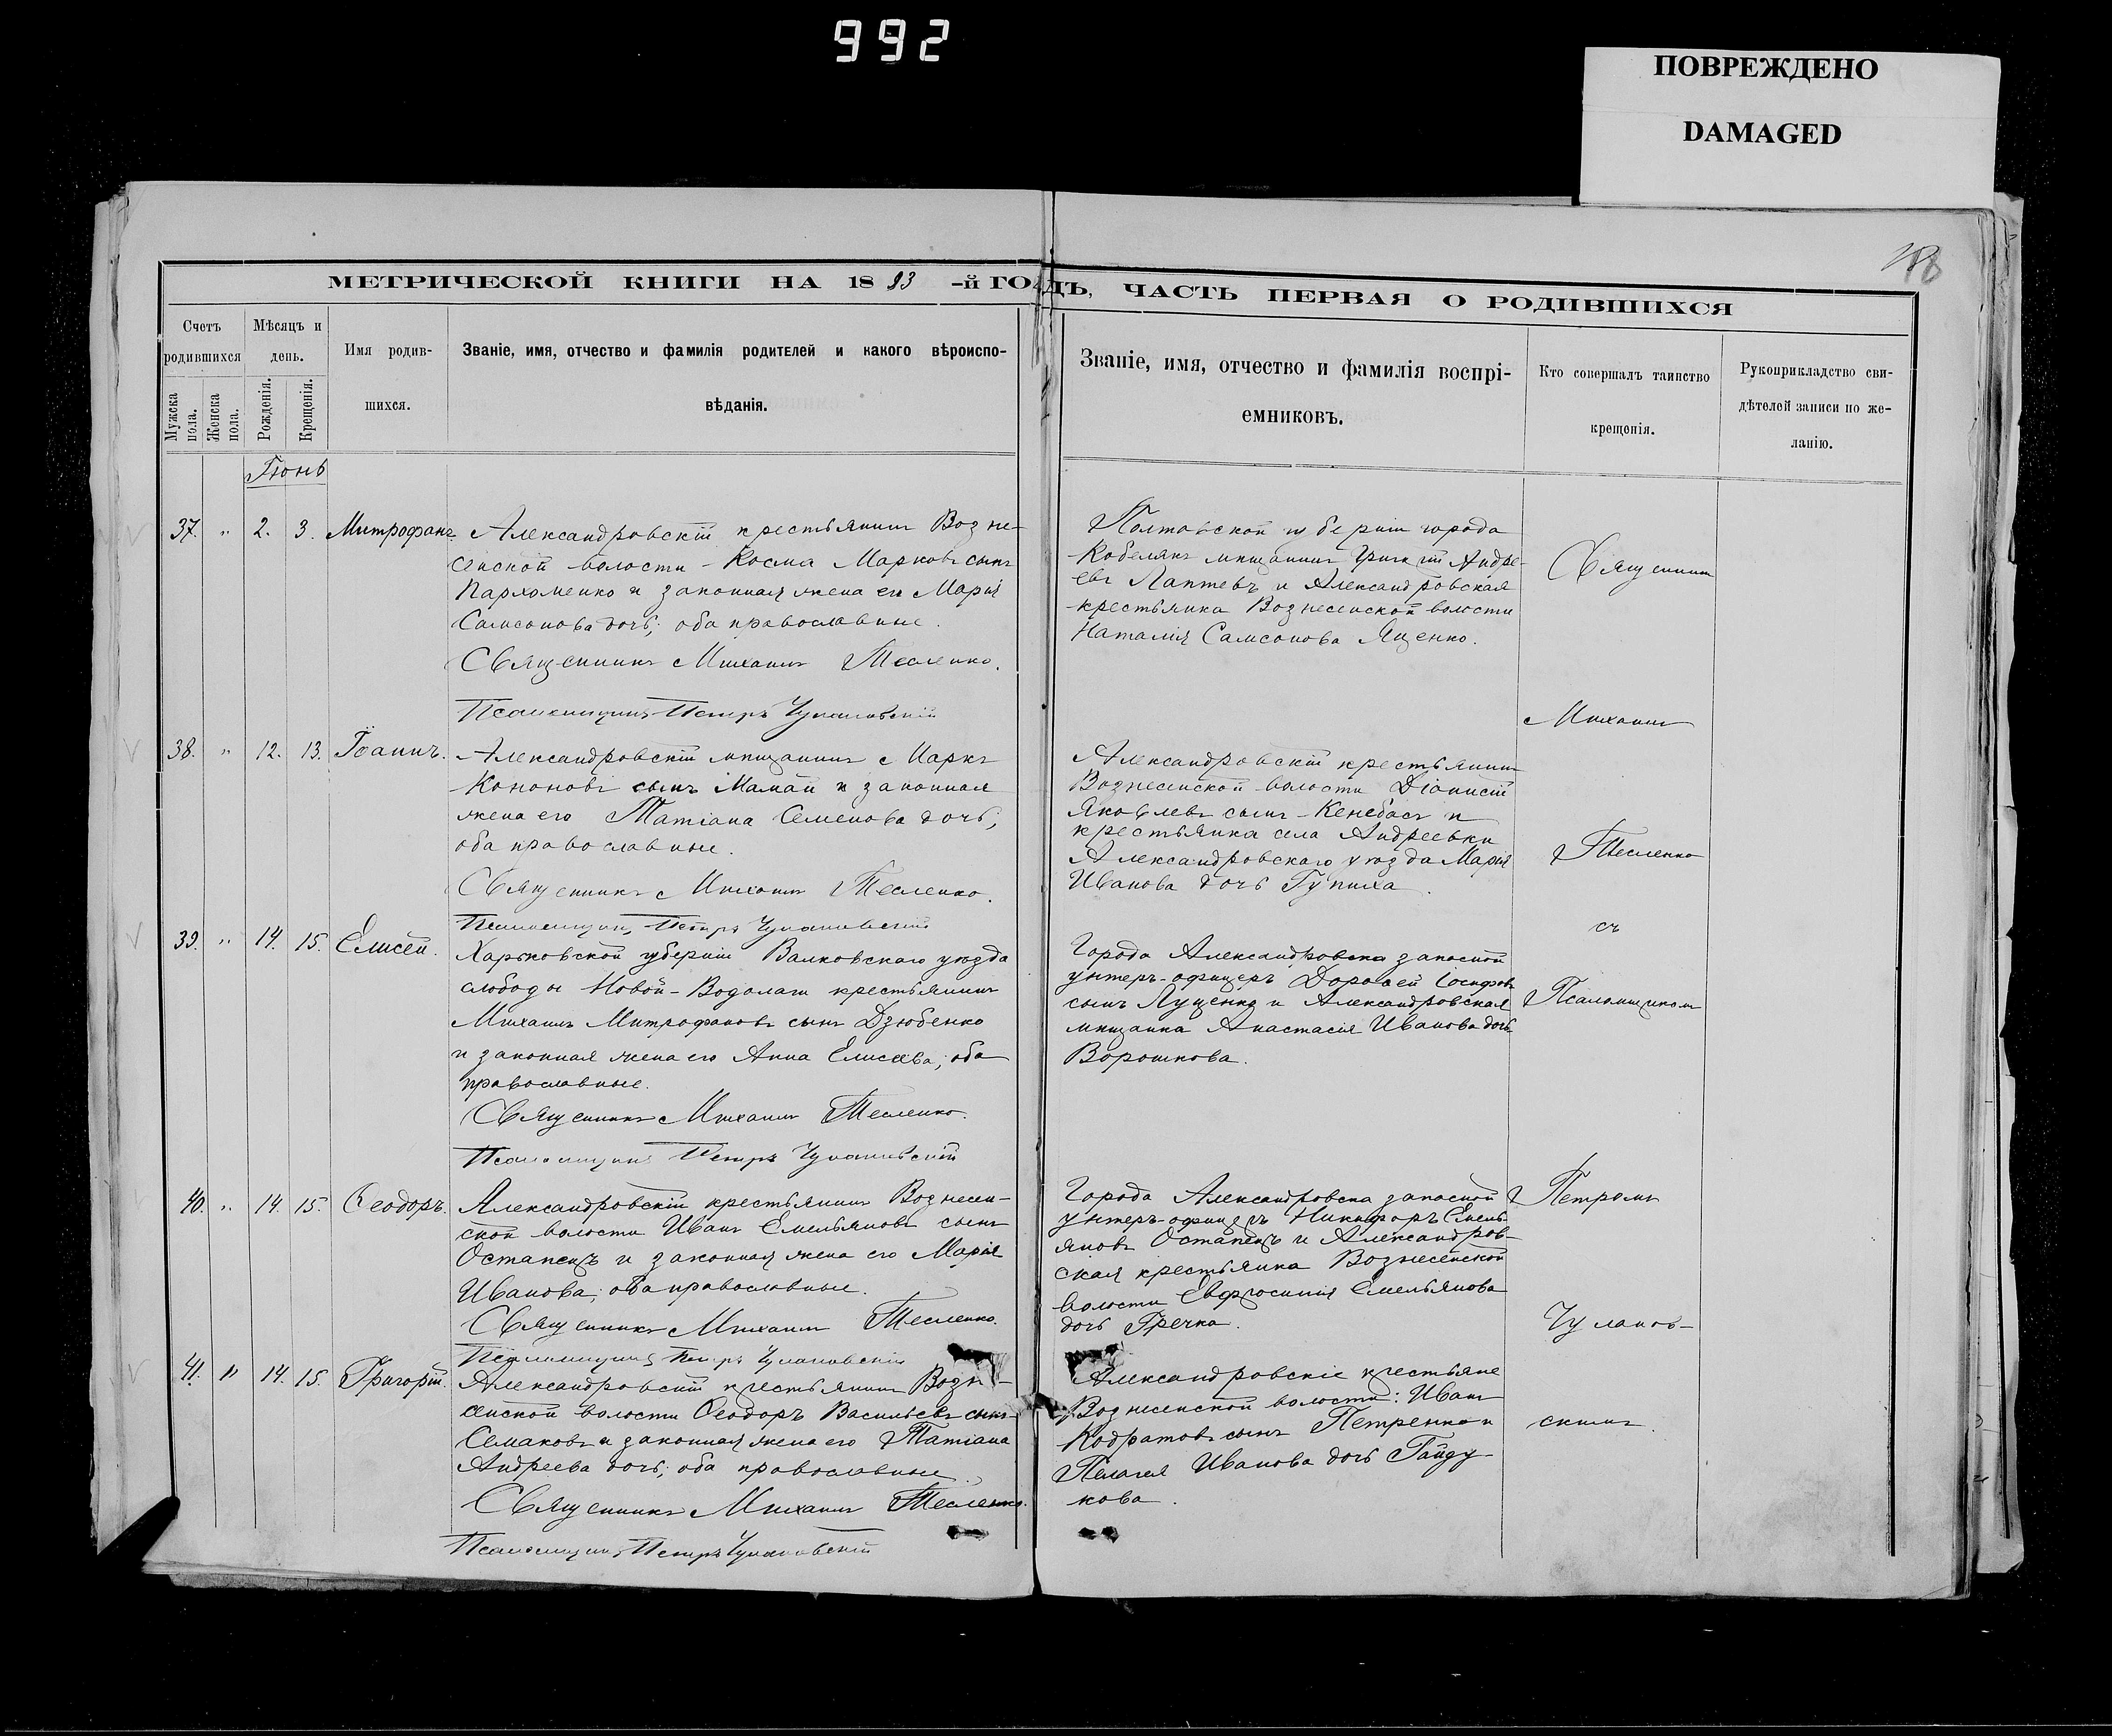 992
ПОВРЕЖДЕНО
DAMAGED
МЕТРИЧЕСКОЙ КНИГИ НА 1893-й ГОДЪ, ЧАСТЬ ПЕРВАЯ О РОДИВШИХСЯ
Счетъ родившихся
Мужска пола.
Женска пола.
Мѣсяцъ и день.
Рожденія.
Крещенія.
Имя родив-
шихся.
Званіе, имя, отчество и фамилія родителей и какого вѣроиспо-
вѣданія.
Званіе, имя, отчество и фамилія воспрі-
емниковъ.
Кто совершалъ таинство
крещенія.
Рукоприкладство сви-
дѣтелей записи по же-
ланію.
Іюнь
37. " 2. 3. Митрофанъ
Александровскій крестьянинъ Возне-
сенской волости Косма Марковъ сынъ
Пархоменко и законная жена его Марія
Самсонова дочь; оба православные.
Священникъ Михаилъ Тесленко.
Псаломщикъ Петръ Чулановскій
Полтавской губерніи города
Кобелякъ мѣщанинъ Григорій Андре-
евъ Лаптевъ и Александровская
крестьянка Вознесенской волости
Наталія Самсонова Яценко.
38. " 12. 13. Іоаннъ.
Александровскій мѣщанинъ Маркъ
Кононовъ сынъ Мамай и законная
жена его Татіана Семенова дочь;
оба православные.
Священникъ Михаилъ Тесленко.
Псаломщикъ Петръ Чулановскій
Александровскій крестьянинъ
Вознесенской волости Діонисій
Яковлевъ сынъ Кенебасъ и
крестьянка села Андреевки
Александровскаго уѣзда Марія
Иванова дочь Гупиха.
39. " 14. 15. Елисей.
Харьковской губерніи Валковскаго уѣзда
слободы Новой-Водолаги крестьянинъ
Михаилъ Митрофановъ сынъ Дзюбенко
и законная жена его Анна Елисеева; оба
православные.
Священникъ Михаилъ Тесленко.
Псаломщикъ Петръ Чулановскій
Города Александровска запасной
унтеръ-офицеръ Дороѳей Іосифовъ
сынъ Луценко и Александровская
мѣщанка Анастасія Иванова дочь
Ворошкова.
40. " 14. 15. Ѳеодоръ.
Александровскій крестьянинъ Вознесен-
ской волости Иванъ Емельяновъ сынъ
Остапецъ и законная жена его Марія
Иванова; оба православные.
Священникъ Михаилъ Тесленко.
Псаломщикъ Петръ Чулановскій
Города Александровска запасной
унтеръ-офицеръ Никифоръ Емель-
яновъ Остапецъ и Александров-
ская крестьянка Вознесенской
волости Евфросинія Емельянова
дочь Гречка.
41. " 14. 15. Григорій.
Александровскій крестьянинъ Возн-
сенской волости Ѳеодоръ Васильевъ сынъ
Семаковъ и законная жена его Татіана
Андреева дочь; оба православные.
Священникъ Михаилъ Тесленко.
Псаломщикъ Петръ Чулановскій
Александровскіе крестьяне
Вознесенской волости: Иванъ
Кодратовъ сынъ Петренко и
Пелагея Иванова дочь Гайду-
кова.
Священникъ
Михаилъ
Тесленко
съ
Псаломщикомъ
Петромъ
Чуланов-
скимъ.